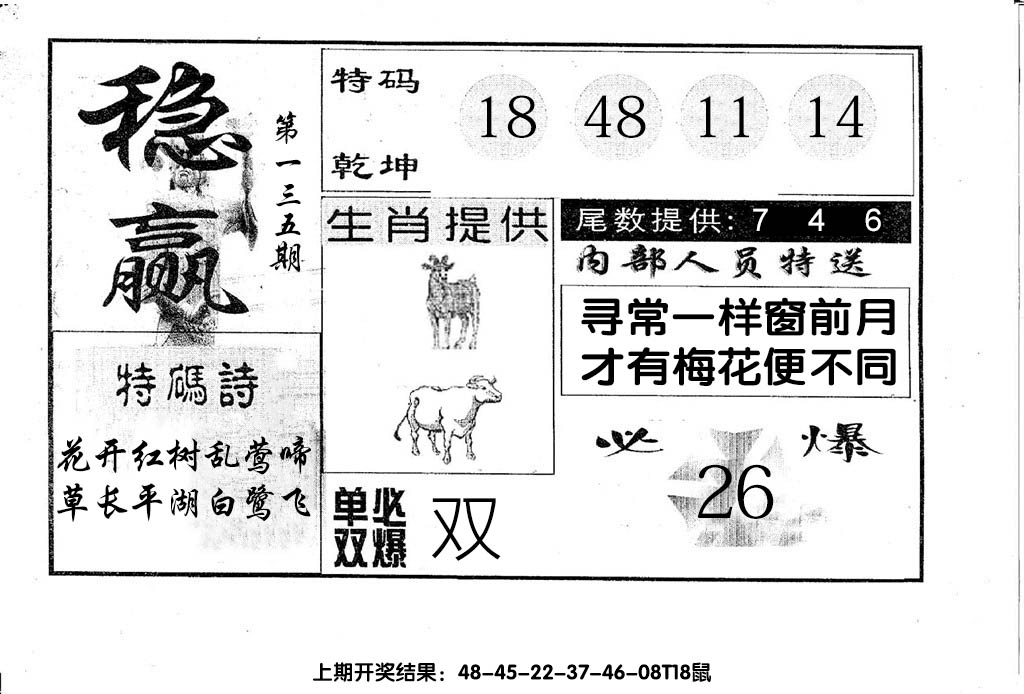 稳赢
第一三五期
特码
乾坤
18 48 11 14
生肖提供
尾数提供: 7 4 6
内部人员特送
寻常一样窗前月
才有梅花便不同
特碼詩
花开红树乱莺啼
草长平湖白鹭飞
单双
必爆
双
必爆
26
上期开奖结果：48-45-22-37-46-08T18鼠